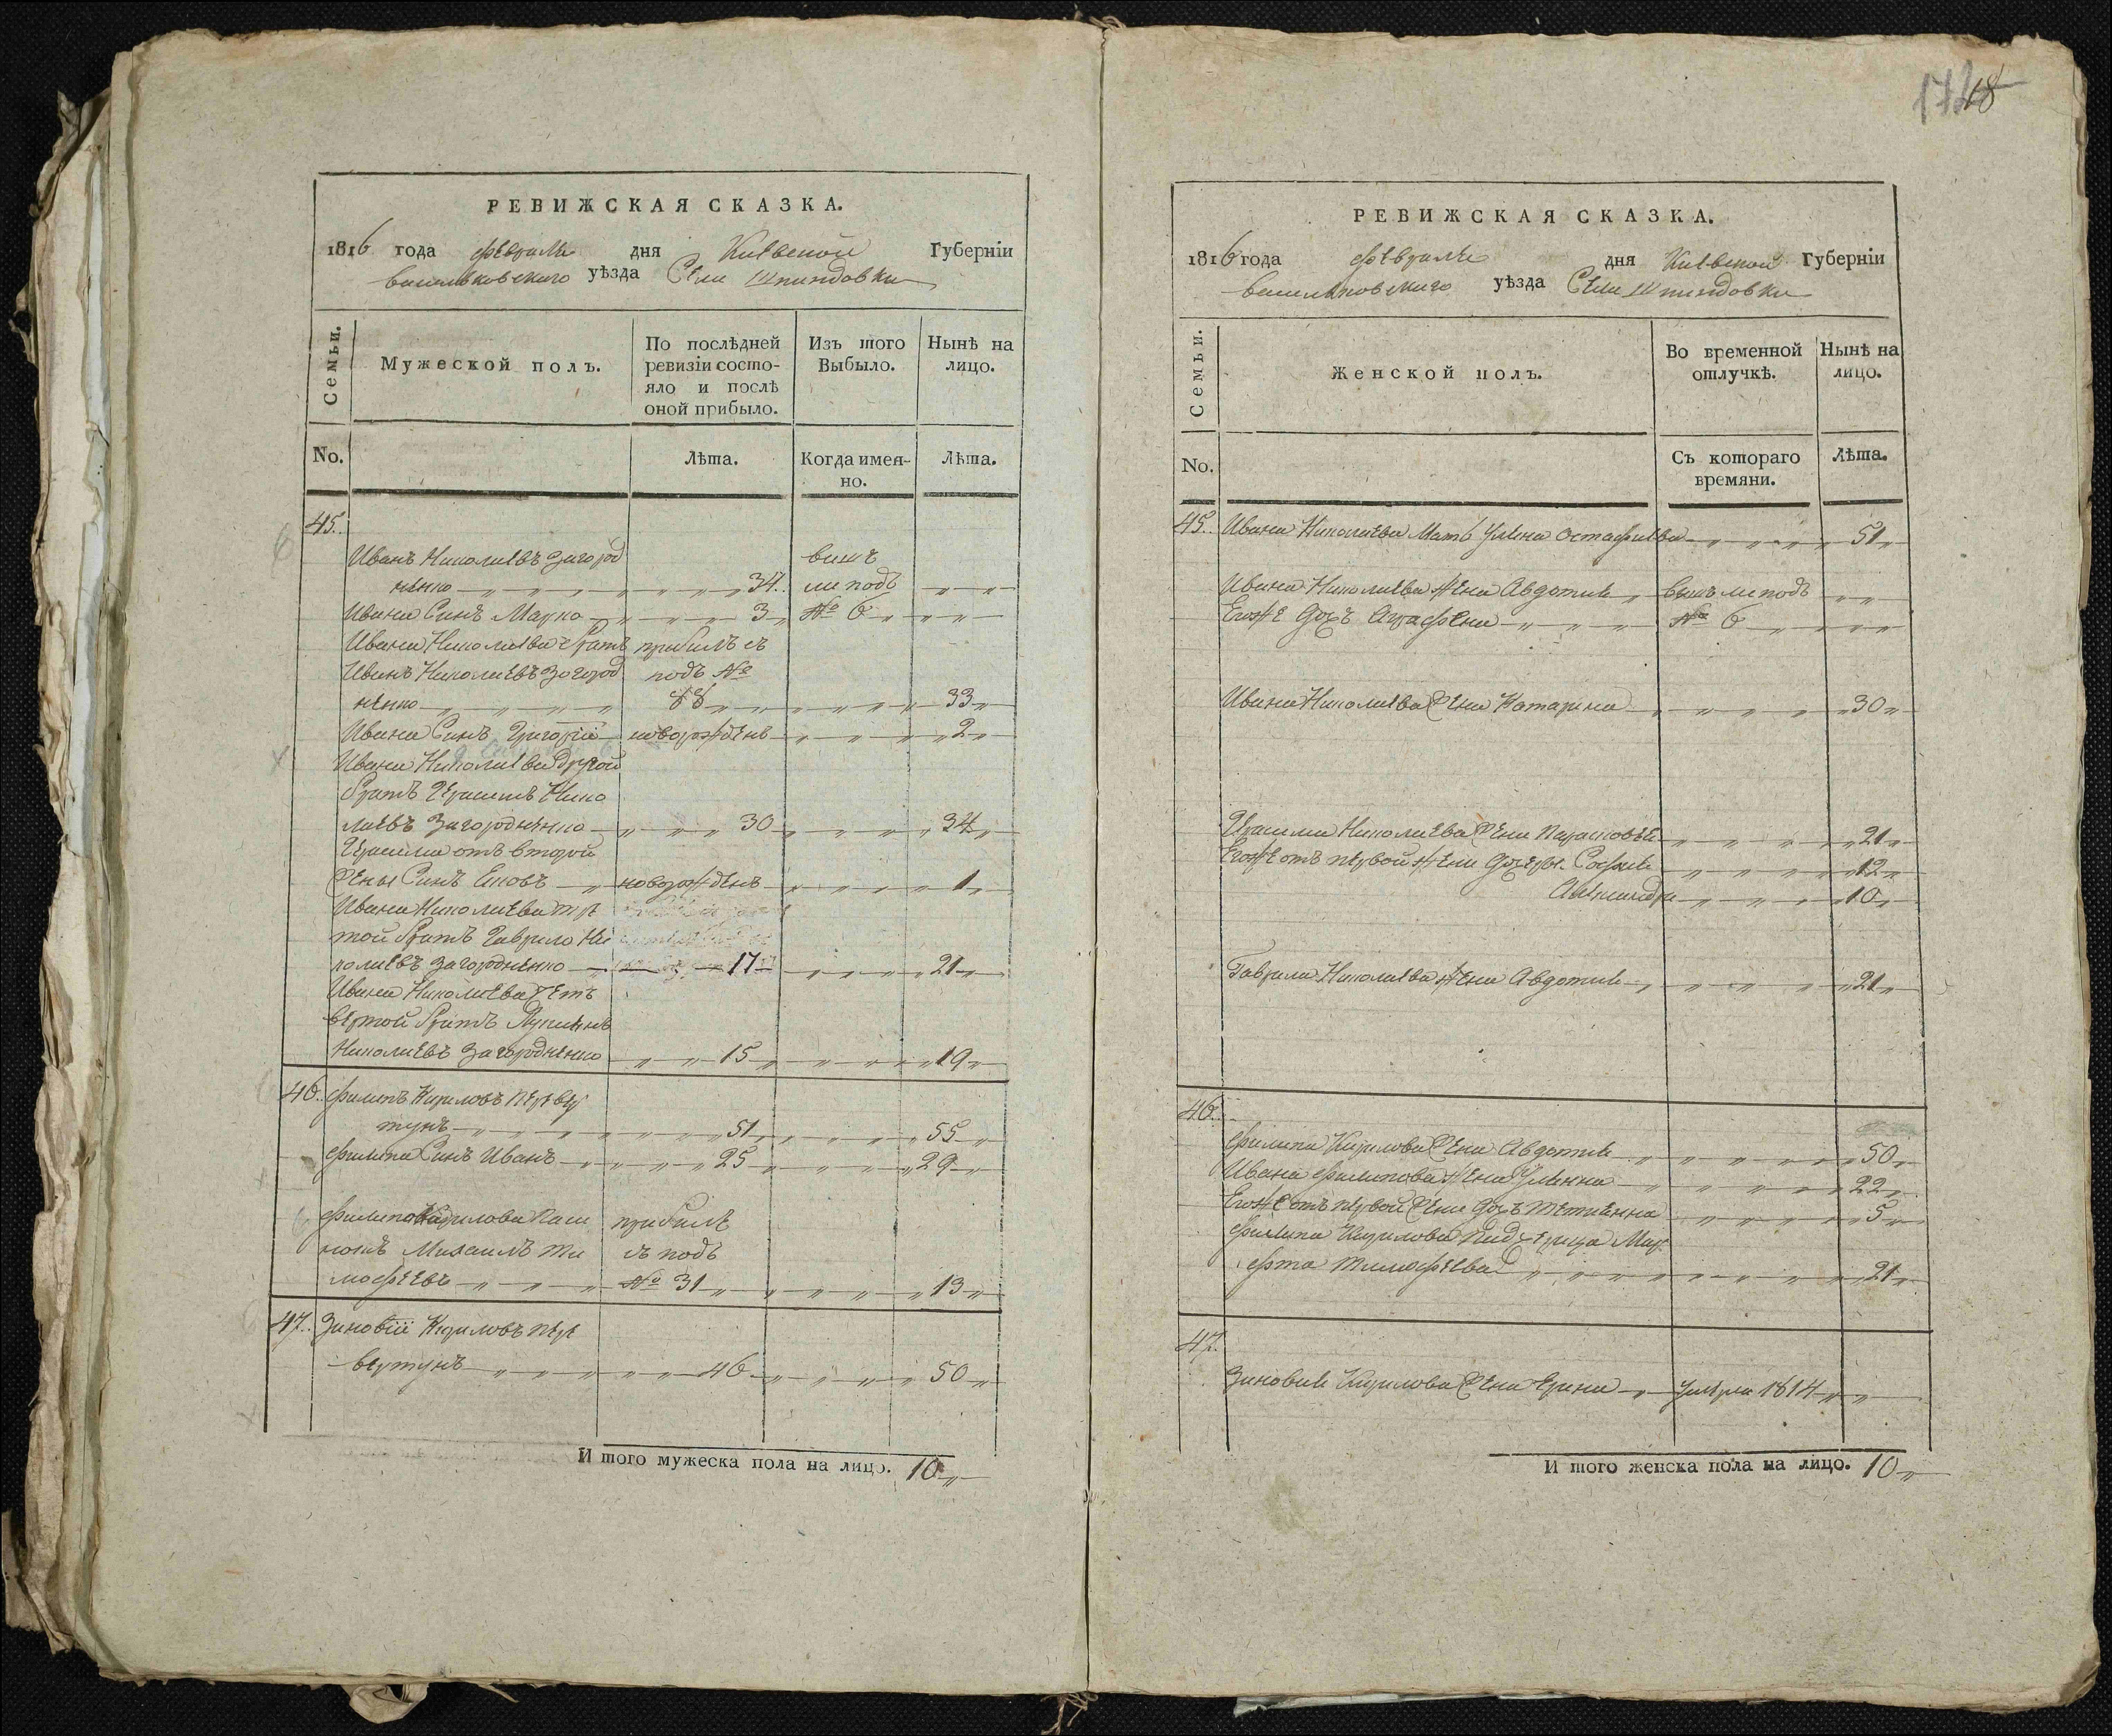 РЕВИЖСКАЯ СКАЗКА.
1816 года февраля дня Киевской Губернїи
васильковского уѣзда Села Шпиндовки
Семьи.
Мужеской полъ.
По послѣдней ревизїи состояло и послѣ оной прибыло.
Изъ того Выбыло.
Нынѣ на лицо.
No.
Лѣта.
Когда именно.
Лѣта.
45.
Иванъ Николаевъ Загород выш
ненко 34 ли подъ
Ивана Синъ Марко 3 № 6
Ивана Николаева братъ прибилъ съ
Иванъ Николаевъ Загород подъ №
ненко 88 33
Ивана Синъ Григорїй новорожденъ 2
Ивана Николаева другой
братъ Герасимъ Нико
лаевъ Загородненко 30 34
Герасима отъ второй
жены Синъ Яковъ новорожденъ 1
Ивана Николаева тре
той братъ Гаврило Ни
колаевъ Загородненко 17 21
Ивана Николаева чет
вертой братъ
Николаевъ Загородненко 15 19
46. Филипъ Кириловъ Перевер
тунъ 51 55
Филипа Синъ Иванъ 25 29
Филипа Кирилова Паси прибилъ
нокъ Михаилъ Ти съ подъ
мофеевъ № 31 13
47. Зиновїй Кириловъ пере
вертунъ 46 50
И того мужеска пола на лицо. 10
18
РЕВИЖСКАЯ СКАЗКА.
1816 года февраля дня Киевской Губернїи
васильковского уѣзда Села Шпиндовки
Семьи.
Женской полъ.
Во временной отлучкѣ.
Нынѣ на лицо.
No.
Съ котораго времяни.
Лѣта.
45. Ивана Николаева Мать Уляна Остафиева 51
Ивана Николаева жена Авдотия вышли подъ
Егоже дочъ Аграфена № 6
Ивана Николаева жена Катарина 30
Герасима Николаева жена Парасковея 21
Егоже отъ первой жены дочери София 12
Александра 10
Гаврила Николаева жена Авдотия 21
46.
Филипа Кирилова жена Авдотия 50
Ивана Филипова жена Улянна 22
Егоже отъ первой жены дочъ Тетиянна 5
Филипа Кирилова Падчерица Мар
фта Тимофеева 21
47.
Зиновия Кирилова жена Ерина умерла 1814
И того женска пола на лицо. 10